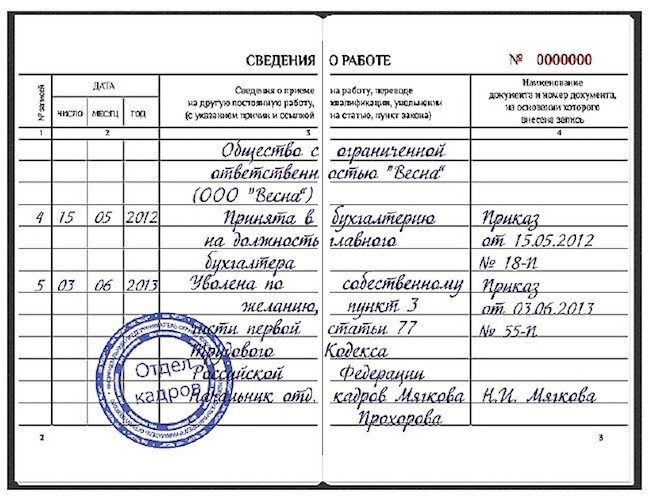 СВЕДЕНИЯ О РАБОТЕ № 0000000
№ записей
ДАТА
Сведения о приеме на работу, переводе
Наименование
на другую постоянную работу, квалификации, увольнении
документа и номер документа,
ЧИСЛО МЕСЯЦ ГОД
(с указанием причин и ссылкой на статью, пункт закона)
на основании которого
внесена запись
1 2 3 4
Общество с ограниченной
ответственностью "Весна"
(ООО "Весна")
4 15 05 2012 Принята в бухгалтерию Приказ
на должность главного от 15.05.2012
бухгалтера № 18-п
5 03 06 2013 Уволена по собественному Приказ
желанию, пункт 3 от 03.06.2013
части первой статьи 77 № 55-п
Трудового Кодекса
Российской Федерации
Начальник отд. кадров Мягкова Н.И. Мягкова
Прохорова
Отдел
кадров
2 3